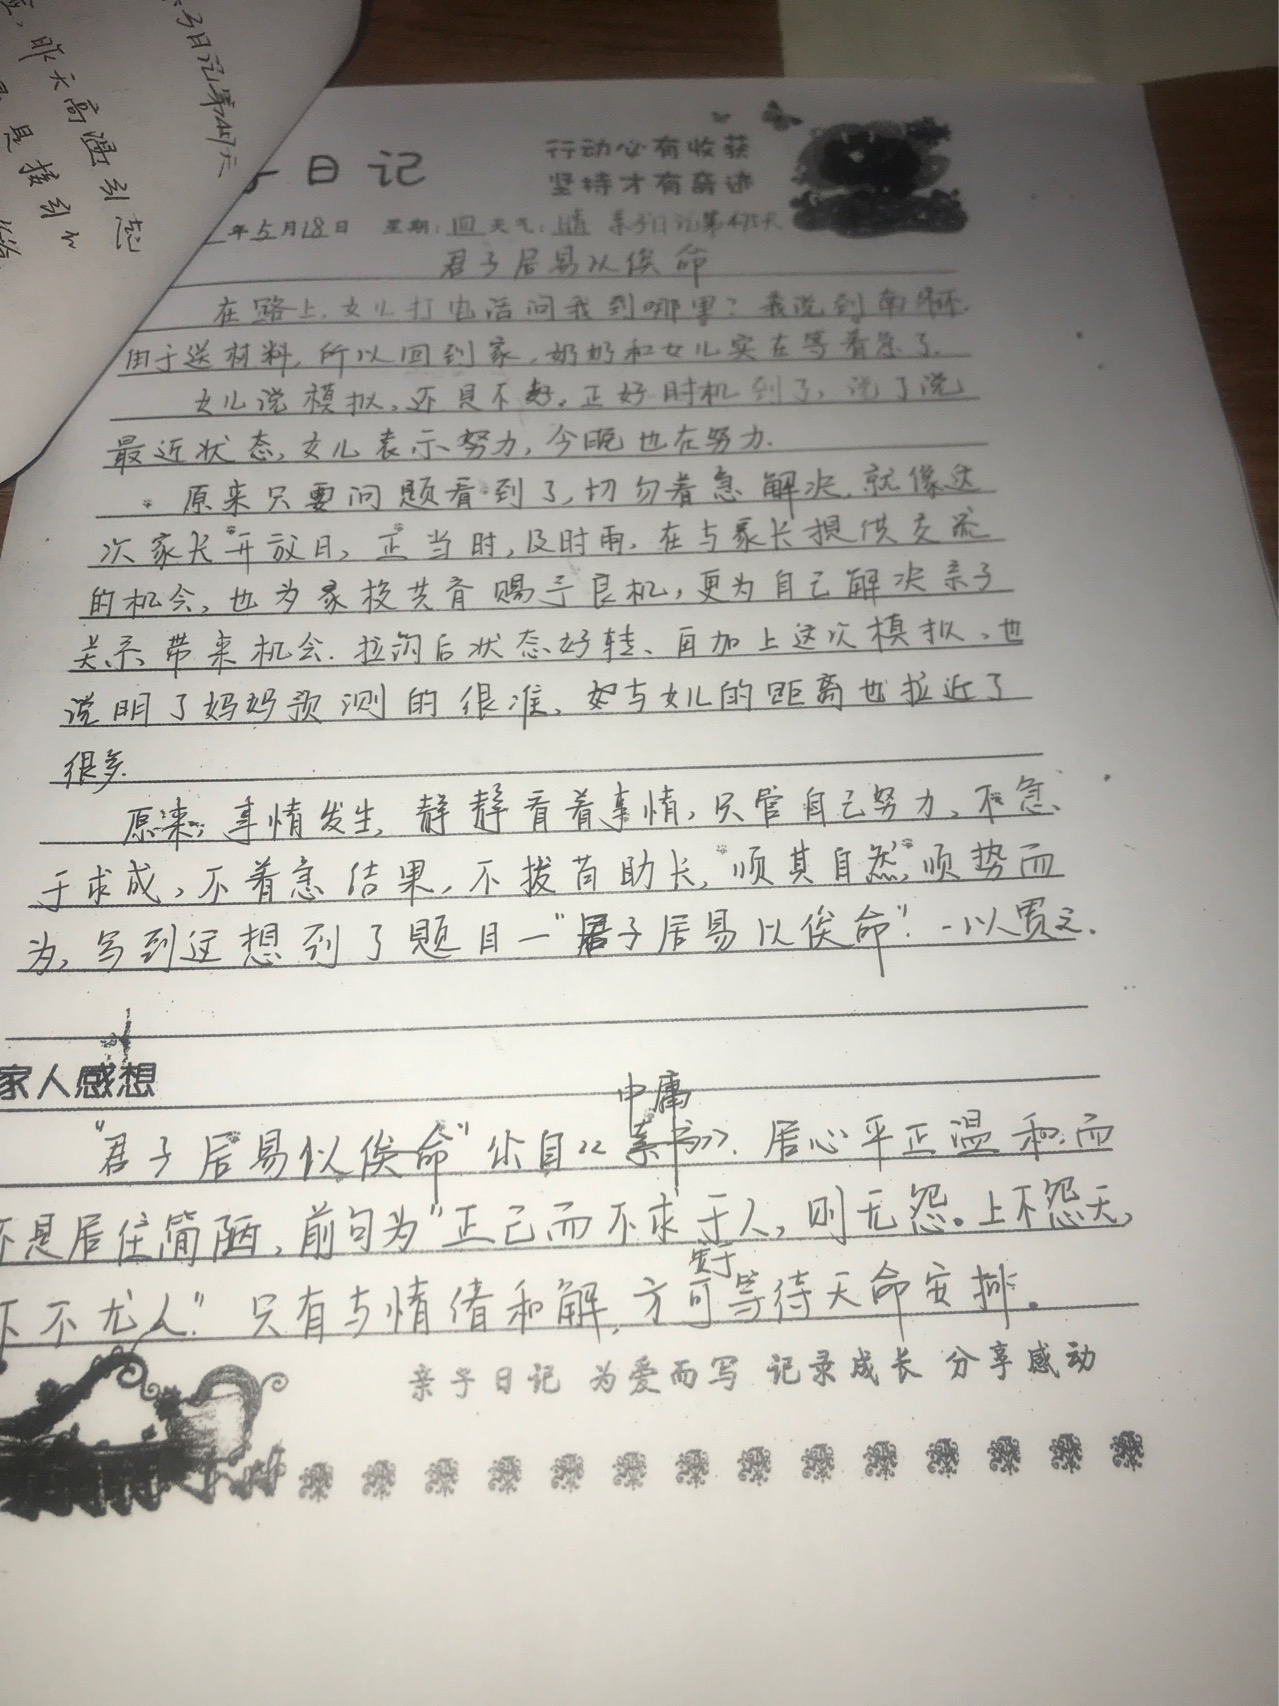 子日记第457天
昨天高温引起
是接引
日记
行动必有收获
坚持才有奇迹
年5月18日 星期:四 天气:晴 亲子日记第475天
君子居易以俟命
在路上,女儿打电话问我到哪里?我说到南环.
由于送材料,所以回到家,奶奶和女儿实在等着急了.
女儿说模拟,还是不好。正好时机到了,说了说
最近状态,女儿表示努力,今晚也在努力.
原来只要问题看到了,切勿着急解决.就像这
次家长"开放日,正当时,及时雨,在与家长提供交流
的机会,也为家校共育赐予良机,更为自己解决亲子
关系带来机会.拉钩后状态好转、再加上这次模拟、也
说明了妈妈预测的很准、如与女儿的距离也拉近了
很多.
原来:事情发生,静静看着事情,只管自己努力、不急
于求成,不着急结果,不拔苗助长,"顺其自然"顺势而
为,写到这想到了题目一"君子居易以俟命".一以贯之.
家人感想
中庸
"君子居易以俟命"你自《》.居心平正温和.而
不是居住简陋,前句为"正己而不求于人,则无怨。上不怨天,
下不尤人."只有与情绪和解,方可等待天命安排。
亲子日记 为爱而写 记录成长 分享感动